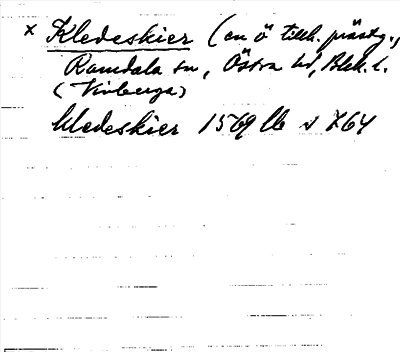 x Kledeskier (en ö tillh. prästg.,
Ramdala sn, Östra hd, Blek. l.
(Vinberga)
kledeskier 1569 lb s 764